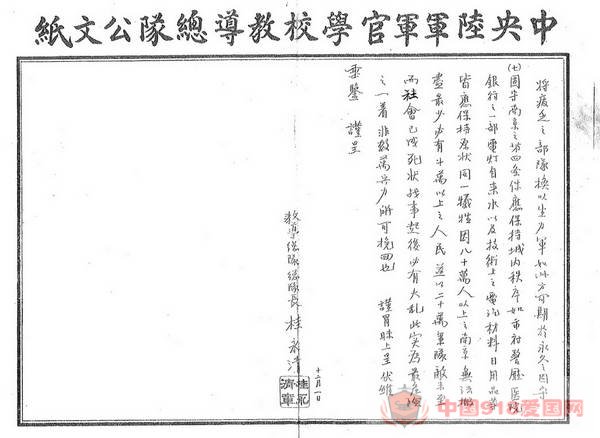 中央陸軍軍官學校教導總隊公文紙
將疲乏之部隊換以生力軍如此方可期於永久固守
(七)固守南京之第四条件應保持城内秩序如市府警廳医院
銀行之一部電灯自来水以及技術上之電汽材料日用品等
皆應保持原状同一犧牲因八十萬人以上之南京無法撤
盡最少必有十萬以上之人民並以二十萬軍隊敵未至
而社會已成死状战事起後必有大乱此实為最危險
之一着非数萬兵力所可挽回也 謹冒昧上呈伏維
垂鑒 謹呈
教導總隊總隊長 桂永清
桂永清章
十二月一日
中国918爱国网